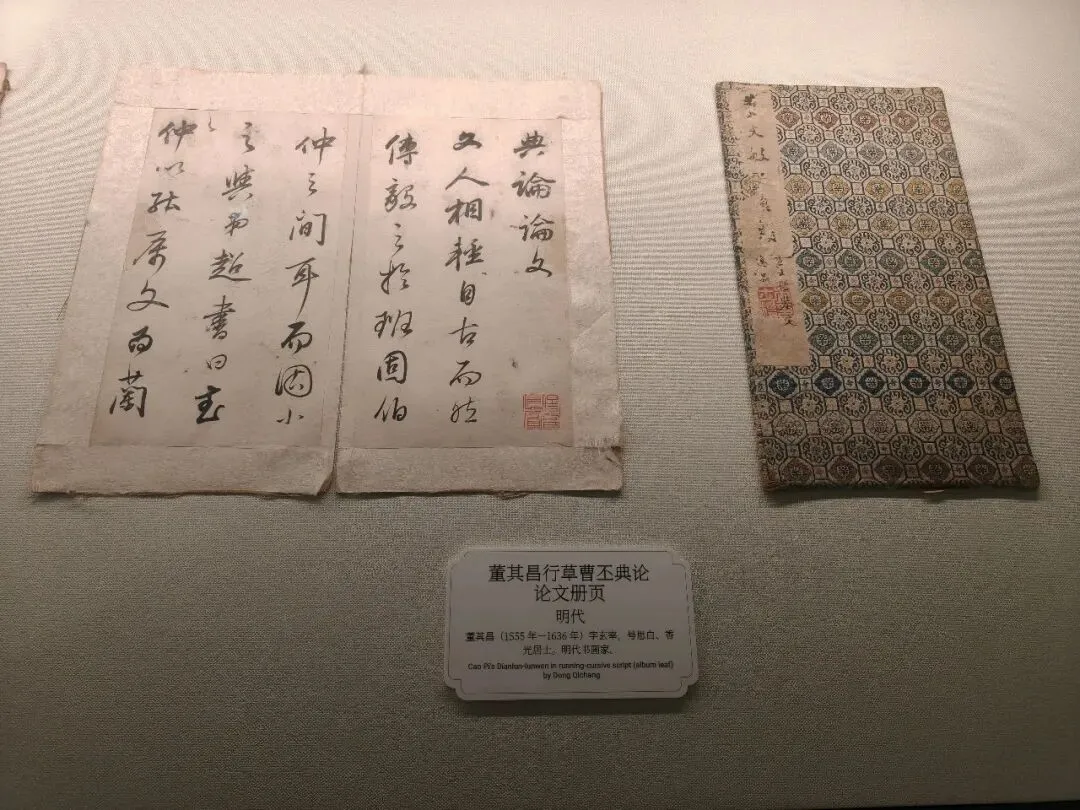 典論論文
文人相輕自古而然
傅毅之於班固伯
仲之間耳而固小
之與弟超書曰武
仲以能屬文為蘭
董其昌行草曹丕典论
论文册页
明代
董其昌（1555 年—1636 年）字玄宰，号思白、香
光居士。明代书画家。
Cao Pi's Dianlun-lunwen in running-cursive script (album leaf)
by Dong Qichang